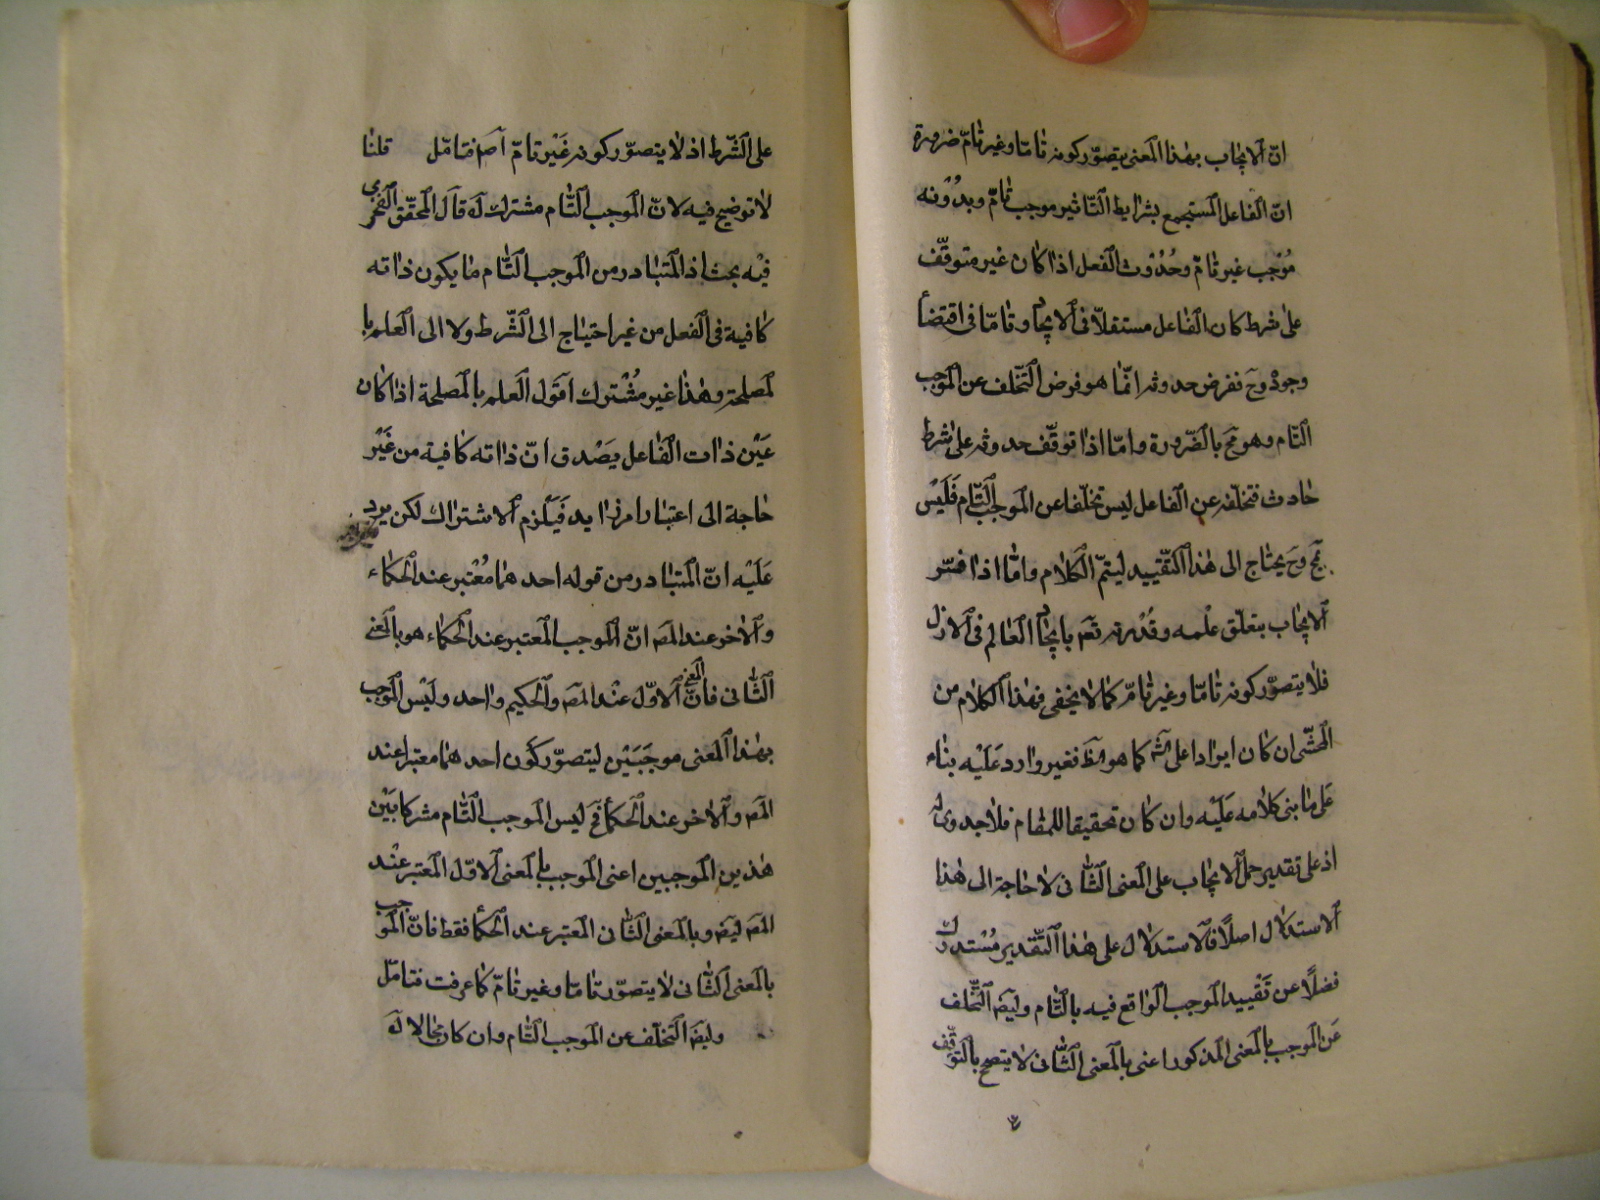 انّ الايجاب بهذا المعنى يتصوّر كونه تامّا وغير تامّ ضرورة
انّ الفاعل المستجمع بشرايط التّاثير موجب تامّ وبدُونه
مُوجب غير تامّ وحُدُوث الفعل اذا كان غير متوقّف
على شرط كان الفاعل مستقلاّ فى الايجاد وتامّا فى اقتضأ
وجودْ وحَ نفرض حدوثه انّما هو فرض التّخلف عن الموجب
التّام وهو مح بالضّرورة وامّا اذا توقّف حدوثه على شرط
حادث فتخلّفه عن الفاعل ليس تخلّفا عن الموجب التّام فَليْس
بمح وحَ يحتاج الى هٰذا التّقييد ليتمّ الكلام وامّا اذا فسّر
الايجاب بتعلّق علْمه وقُدْرته تعَ بايجاد العالم فى الازل
فلا يتصوّر كونه تامّا وغير تامّ كما لا يخفى فهٰذا الكلام من
المحشّى ان كان ايرادا على الشّه كما هو الظّ فغير وارد عَليْه بناء
عَلى ما بنى كلامه عَليْه وان كان تحقيقا للمقام فلا جدوى له
اذ على تقدير حمل الايجاب على المعنى الثّانى لا حاجة الى هٰذا
الاستدلال اصلًا فالاستدلال على هٰذا التّقدير مُسْتدرك
فضلًا عن تقْييد الموجب الواقع فيه بالتّام وليضَ التّخلف
عَن الموجب بالمعنى المذكور اعنى بالمعنى الثّانى لا يتصحح بالتّوقّف
على الشّرط اذ لا يتصوّر كونه غَيْر تامّ آصَ فتامّل قلنا
لا توضيح فيه لانّ الموجب التّام مشترك لَه قال المحقّق الفخرى
فيْه بحث اذ المتبادر من الموجب التّام ما يكون ذاته
كافية فى الفعل من غير احتياج الى الشّرط ولا الى العلم با
لمصلحة وهٰذا غير مُشْترك اقول العلم بالمصلحة اذا كان
عَيْن ذات الفاعل يَصْدق انّ ذاته كافية من غَيْر
حاجة الى اعتبار امر زايد فَيَلزم الاشتراك لكن يرد
عَليْه انّ المتبادر من قوله احدهما مُعْتبر عند الحكماء
والاخر عند المصَ انّ الموجب المعتبر عند الحكماء هو بالمعنى
الثّانى فانّ الاوّل عنْد المصَ والحكيم واحد وليْس الموجب
بهٰذا المعنى موجبَيْن ليتصوّر كَون احدهما معتبرا عند
المصَ والاخر عند الحكمأ فحَ ليس الموجب التّام مشتركا بَيْن
هٰذين الموجبين اعنى الموجب بالمعنى الاوّل المعتبر عنْد
المصَ ليضَ وبالمعنى الثّانى المعتبر عند الحكمأ فقط فانّ الموجب
بالمعنى الثّانى لا يتصوّر تامّا وغير تامّ كما عرفت فتامّل
وليضَ التّخلّف عن الموجب التّام وان كان مجالا لَه